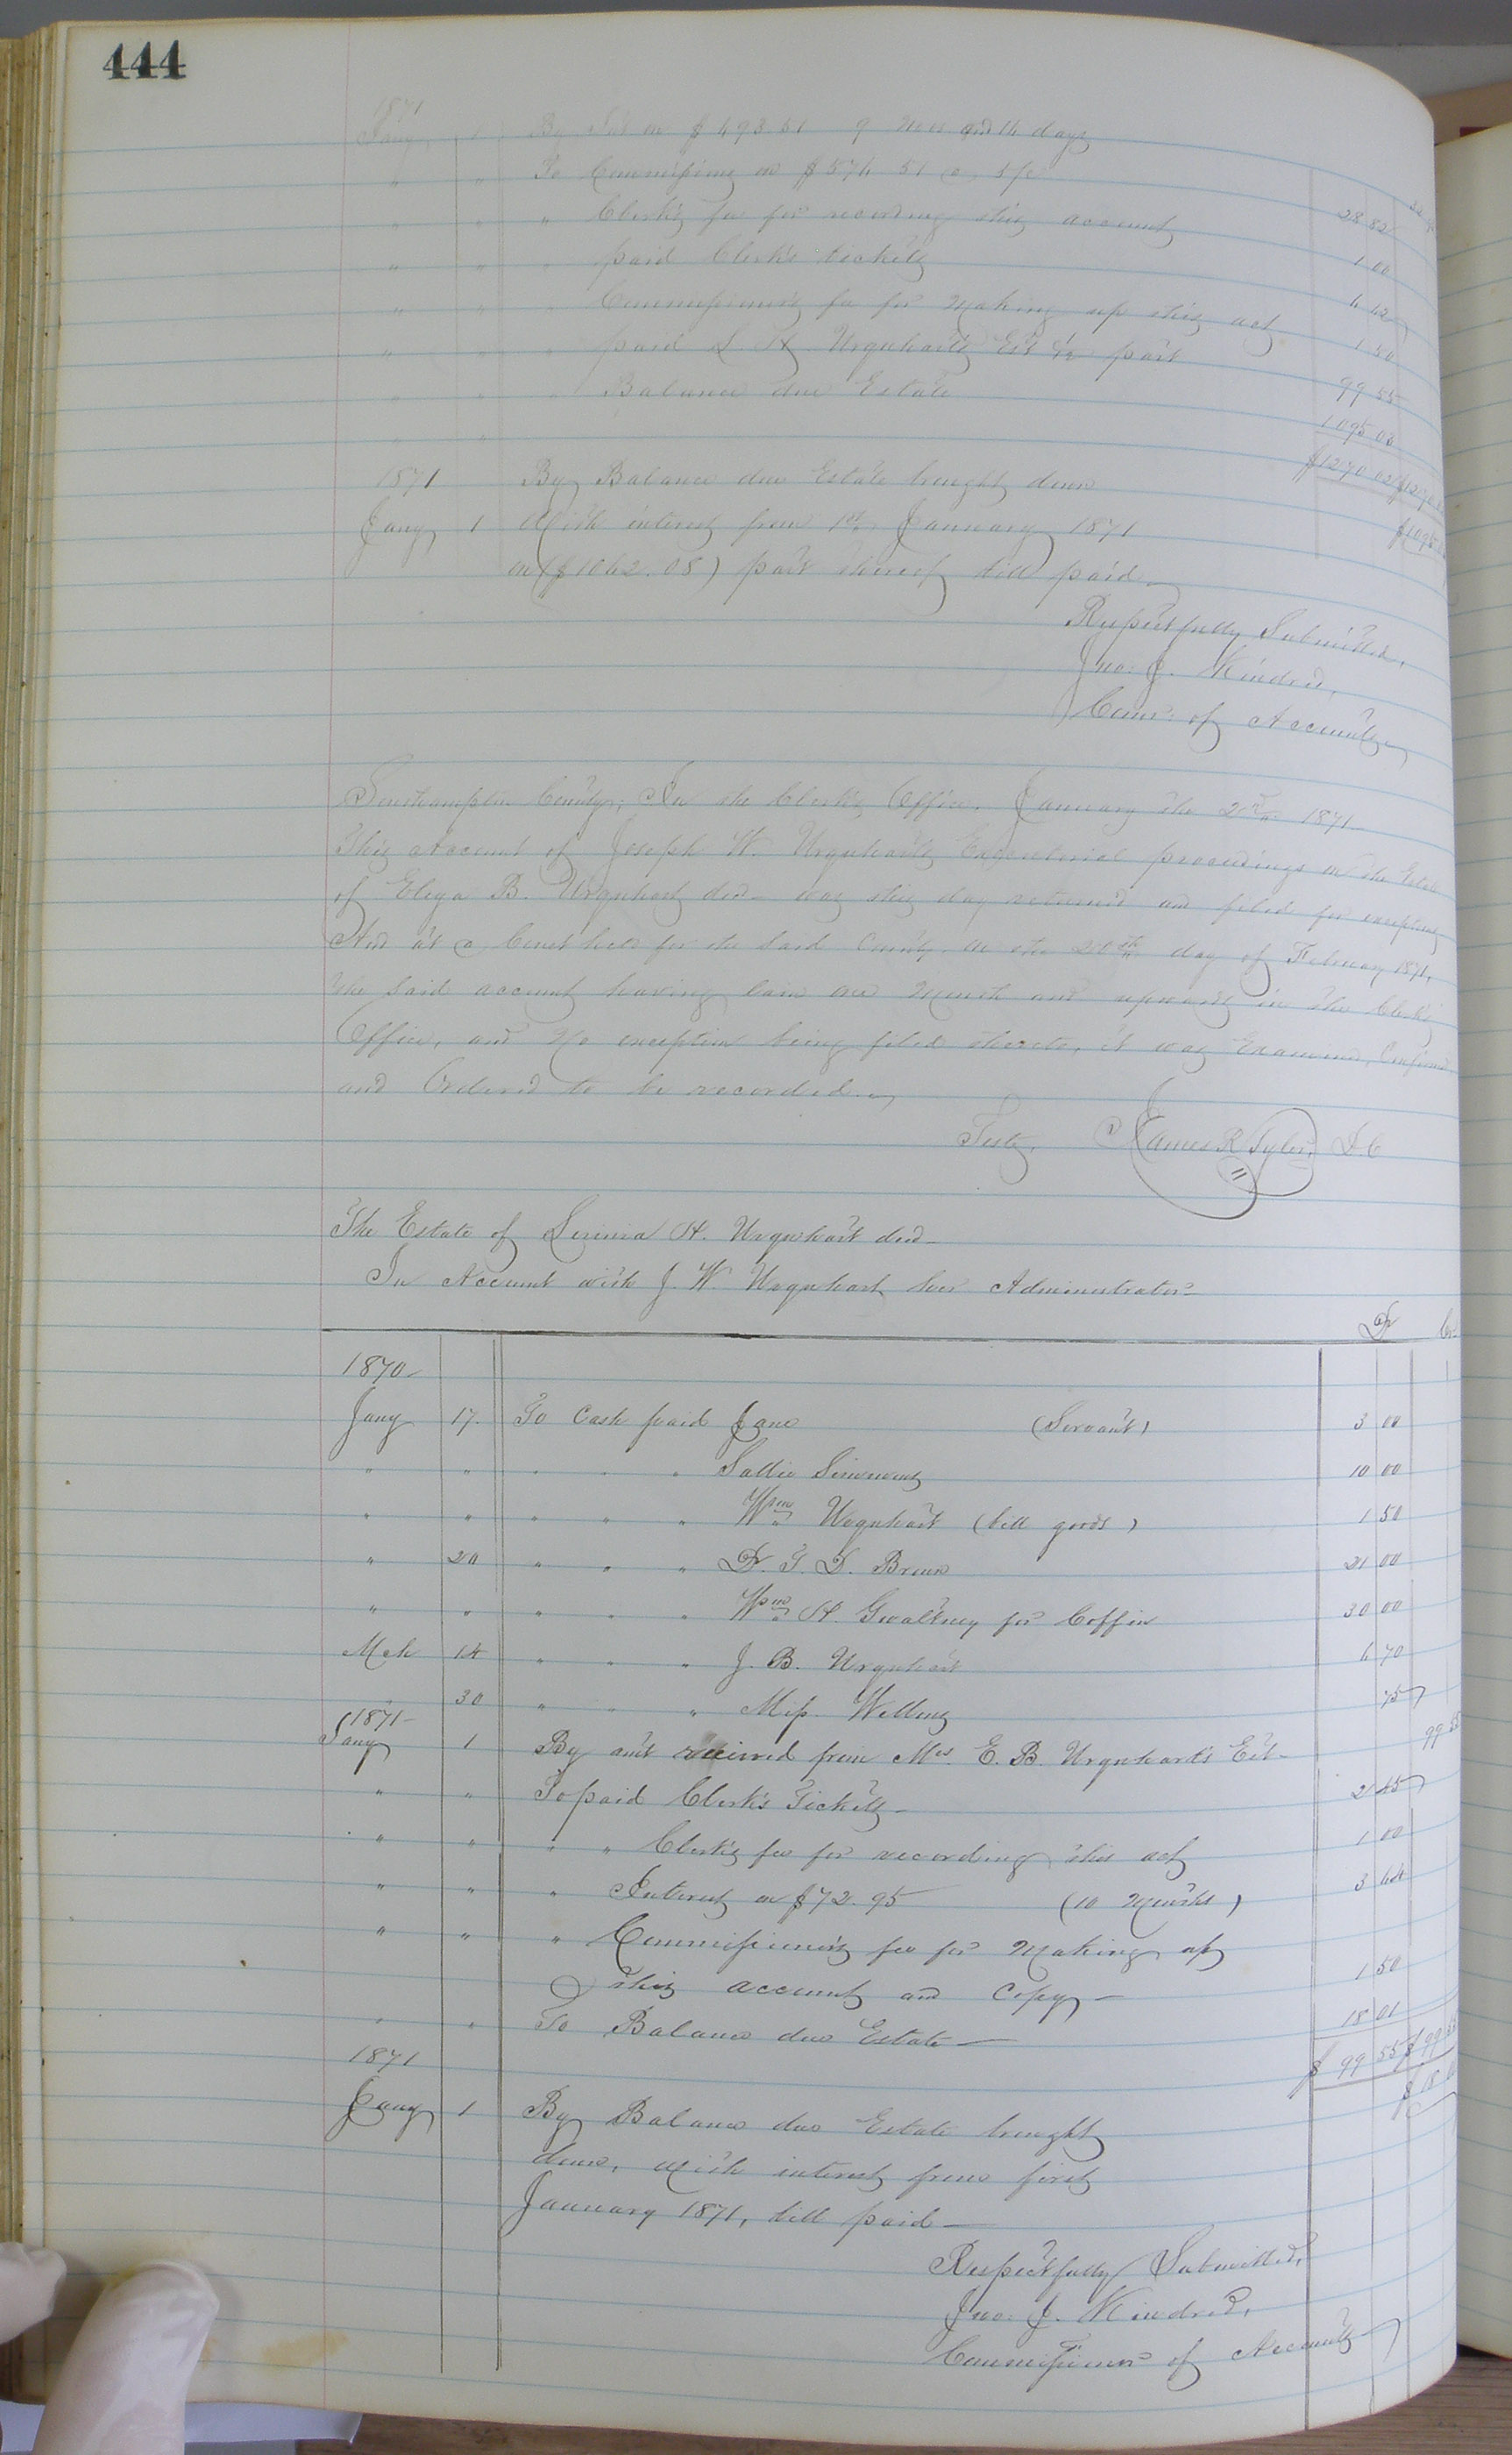 444
1871
Jany 1 By Int on $493.51 9 mos and 14 days
" " To Commissions on $576 51 @ 5 pc 28 82
" " " Clerk's fee for recording this account 1 00
" " " paid Clerk's tickets
" " " Commissioner's fee for making up this act 1 50
" " " paid L. H. Urquhart's Est ½ part 99 55
" " " Balance due Estate 1095 03
$1270 02
1871 By Balance due Estate brought down
Jany 1 With interest from 1st January 1871
on ($1062.08) part thereof till paid
Respectfully Submitted,
Jno: J. Kindred,
Comr: of Accounts
Southampton County; In the Clerk's Office, January the 2nd 1871
This Account of Joseph W. Urquhart's Executorial proceedings on the Estate
of Eliza B. Urquhart decd was this day returned and filed for exceptions
And at a Court held for the said County on the 20th day of February 1871,
the said account having lain one Month and upwards in the Clerk's
Office, and no exceptions being filed thereto, it was Examined, Confirmed
and Ordered to be recorded.
Teste, James R Tyler, D.C
The Estate of Lavinia H. Urquhart decd
In Account with J. W. Urquhart her Administrator
Dr Cr
1870
Jany 17 To Cash paid Jane (Servant) 3 00
" " " " " Sallie Simmons 10 00
" " " " " Wm Urquhart (bill goods) 1 50
" 20 " " " Dr. T. D. Brown 21 00
" " " " " Wm H. Gwaltney for Coffin 30 00
Mch 14 " " " J. B. Urquhart 6 70
" 30 " " " Miss Wellons 75
1871
Jany 1 By amt received from Mrs E. B. Urquhart's Est 99 55
" " To paid Clerk's Tickets 2 45
" " " " Clerk's fee for recording this act 1 00
" " " Interest on $72.95 (10 Months) 3 64
" " " Commissioner's fee for making up
this account and Copy 1 50
" " To Balance due Estate 18 01
$ 99 55 $ 99 55
1871 $ 18 01
Jany 1 By Balance due Estate brought
down, with interest from first
January 1871, till paid
Respectfully Submitted,
Jno: J. Kindred,
Commissioner of Accounts